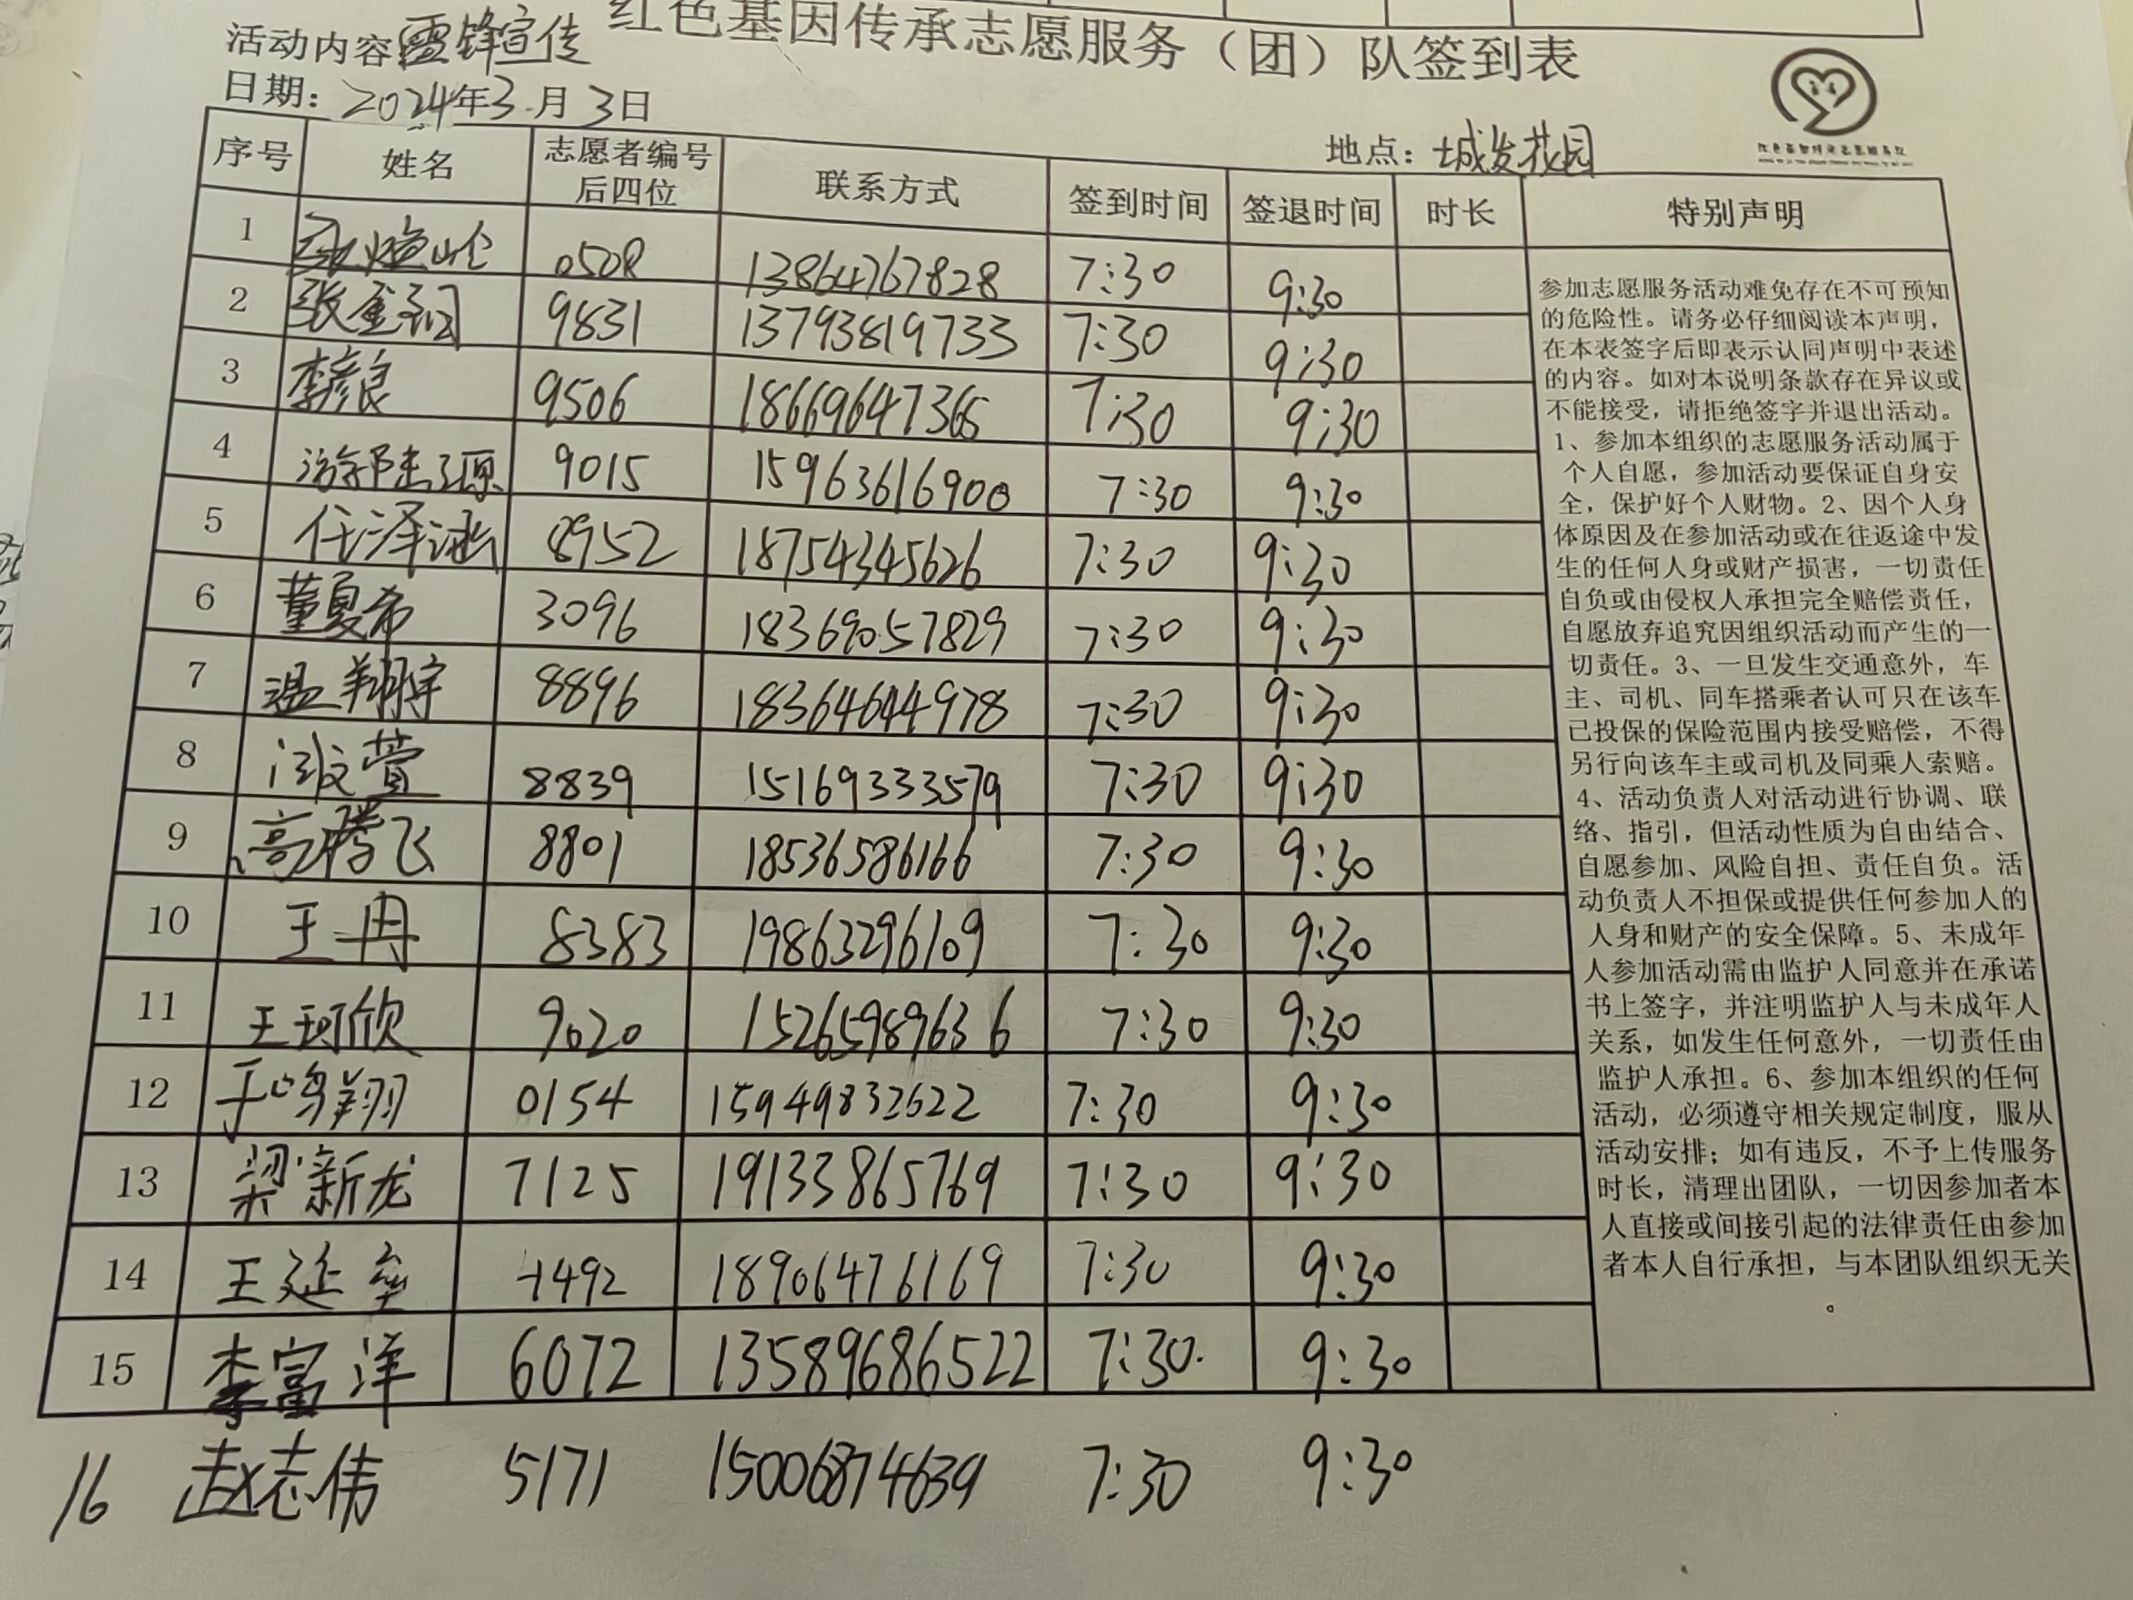 红色基因传承志愿服务（团）队签到表
活动内容 雷锋宣传
日期：2024年3月3日
地点：城发花园
序号 姓名 志愿者编号后四位 联系方式 签到时间 签退时间 时长 特别声明
1 0508 13864767828 7:30 9:30
2 张 9831 13793819733 7:30 9:30
3 李彦良 9506 18669647365 7:30 9:30
4 9015 15963616900 7:30 9:30
5 任泽涵 8952 18754345626 7:30 9:30
6 董夏希 3096 18369057829 7:30 9:30
7 温翔宇 8896 18364644978 7:30 9:30
8 8839 15169333579 7:30 9:30
9 高腾飞 8801 18536586166 7:30 9:30
10 王冉 8383 19863296109 7:30 9:30
11 王珂欣 9020 15265989636 7:30 9:30
12 于鸣翔 0154 15949832622 7:30 9:30
13 梁新龙 7125 19133865769 7:30 9:30
14 王延 1492 18906476169 7:30 9:30
15 李富洋 6072 13589686522 7:30 9:30
16 赵志伟 5171 15006874639 7:30 9:30
参加志愿服务活动难免存在不可预知
的危险性。请务必仔细阅读本声明，
在本表签字后即表示认同声明中表述
的内容。如对本说明条款存在异议或
不能接受，请拒绝签字并退出活动。
1、参加本组织的志愿服务活动属于
个人自愿，参加活动要保证自身安
全，保护好个人财物。2、因个人身
体原因及在参加活动或在往返途中发
生的任何人身或财产损害，一切责任
自负或由侵权人承担完全赔偿责任，
自愿放弃追究因组织活动而产生的一
切责任。3、一旦发生交通意外，车
主、司机、同车搭乘者认可只在该车
已投保的保险范围内接受赔偿，不得
另行向该车主或司机及同乘人索赔。
4、活动负责人对活动进行协调、联
络、指引，但活动性质为自由结合、
自愿参加、风险自担、责任自负。活
动负责人不担保或提供任何参加人的
人身和财产的安全保障。5、未成年
人参加活动需由监护人同意并在承诺
书上签字，并注明监护人与未成年人
关系，如发生任何意外，一切责任由
监护人承担。6、参加本组织的任何
活动，必须遵守相关规定制度，服从
活动安排；如有违反，不予上传服务
时长，清理出团队，一切因参加者本
人直接或间接引起的法律责任由参加
者本人自行承担，与本团队组织无关
。